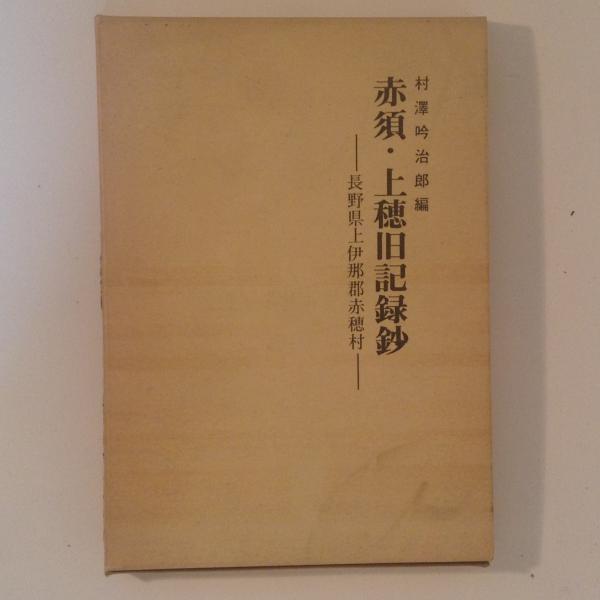 村澤吟治郎編
赤須・上穂旧記録鈔
―長野県上伊那郡赤穂村―